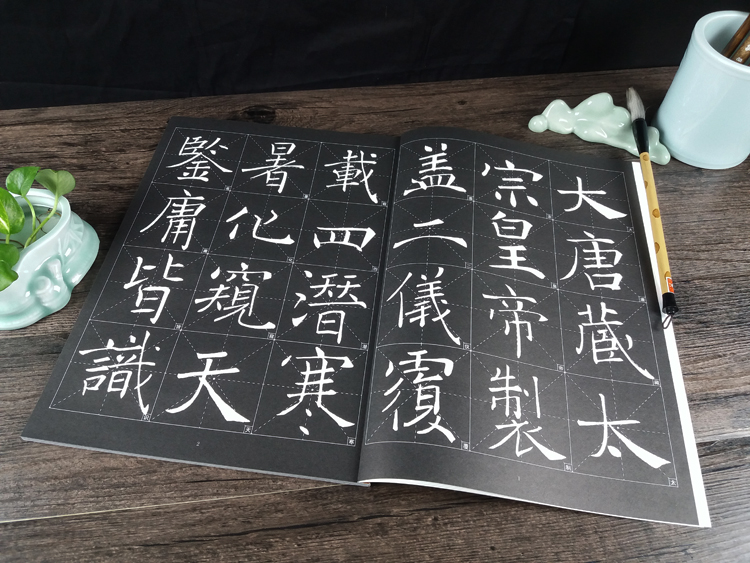 大唐蔵太
宗皇帝製
盖二儀覆
載四潛寒
暑化窺天
鑒庸皆識